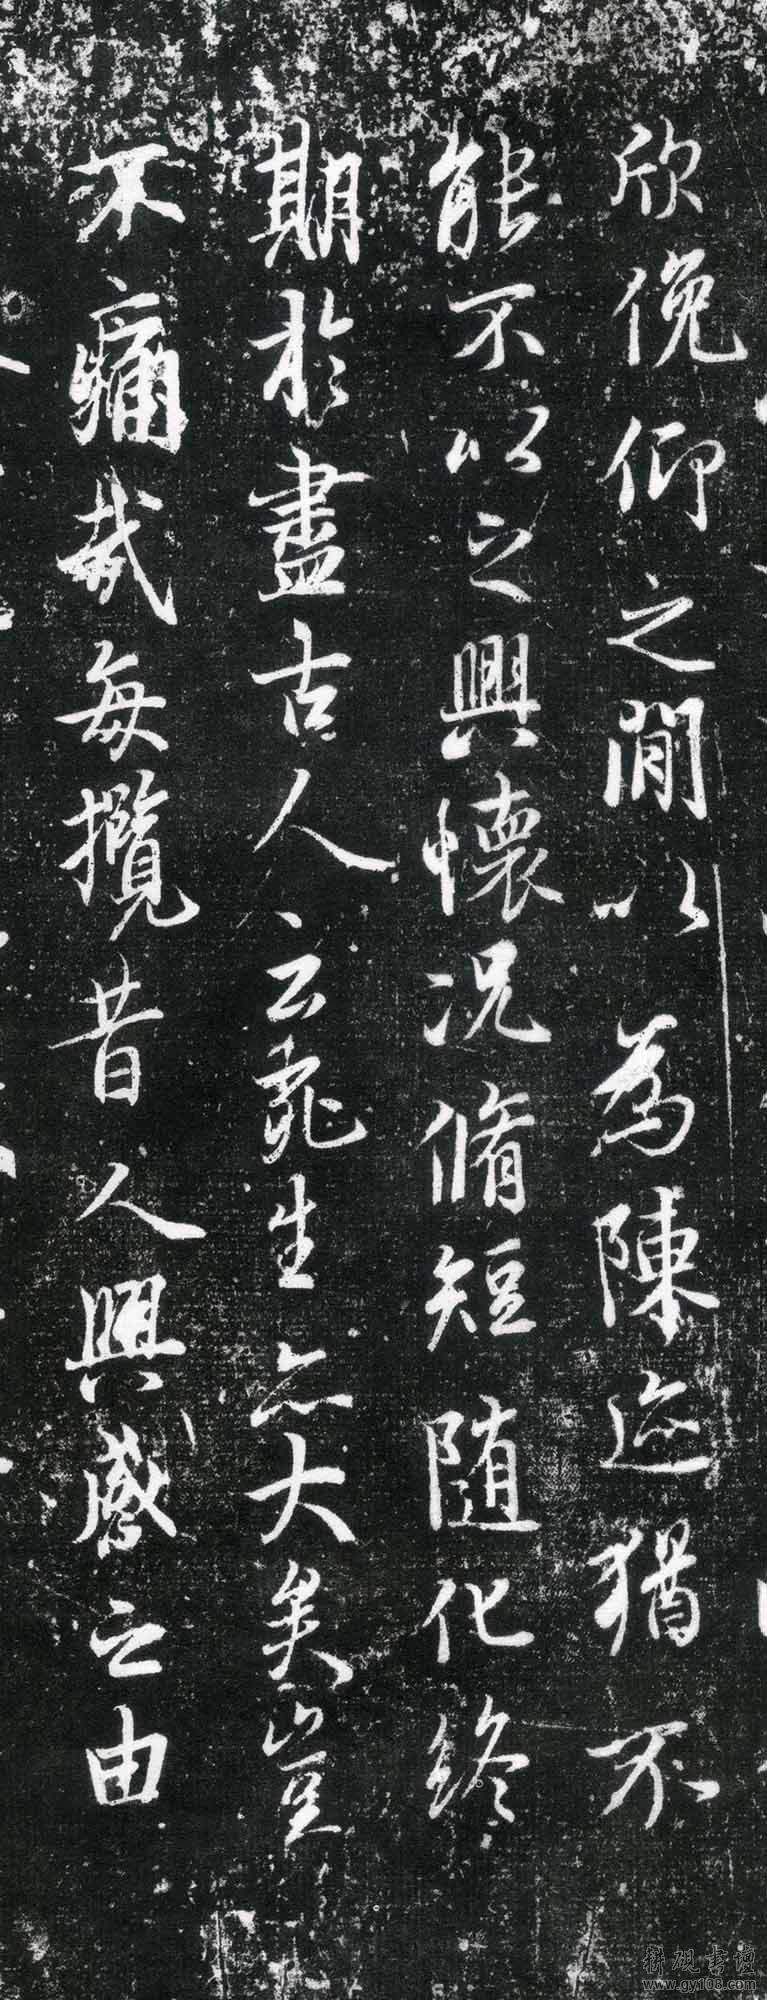 欣俛仰之閒以為陳迹猶不
能不以之興懷況脩短随化終
期於盡古人云死生亦大矣豈
不痛哉每攬昔人興感之由
耕硯書壇
www.gy108.com